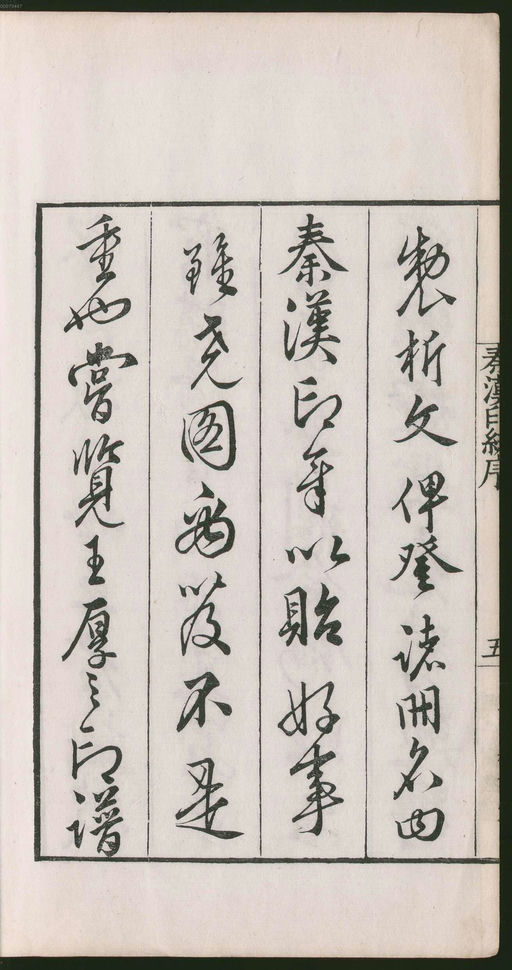 製析文俾登諸冊名曰
秦漢印章以貽好事
雖堯圖禹笈不是
重也嘗覽王厚之印譜
秦漢印統序
五